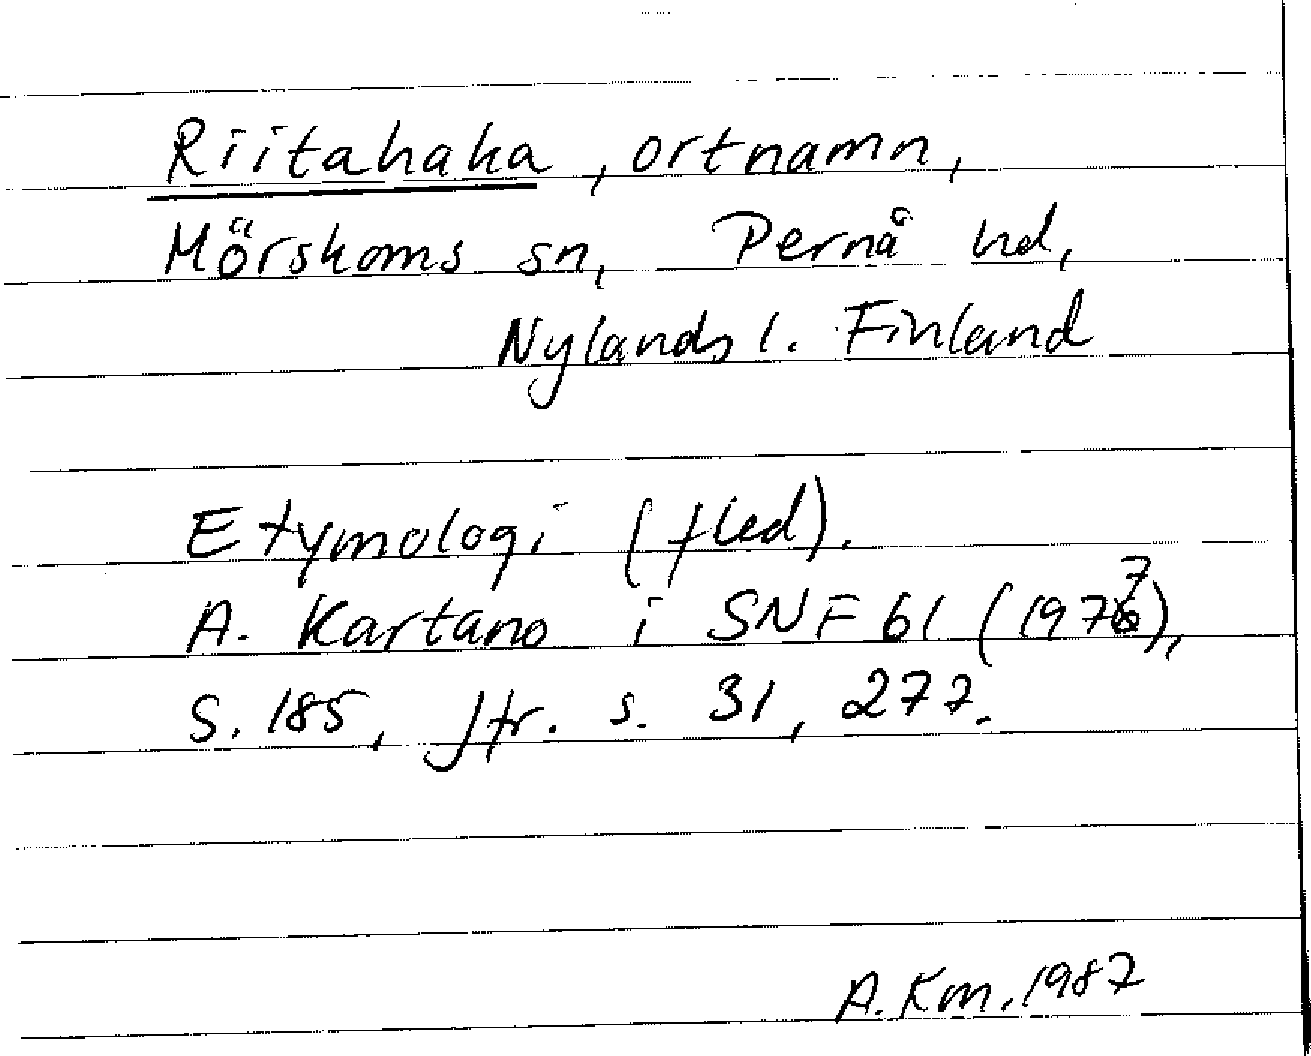 Riitahaka, ortnamn,
Mörskoms sn, Pernå hd,
Nylands l. Finland
Etymologi (fled).
A. Kartano i SNF 61 (1977),
S. 185, Jfr. s. 31, 277.
A. Km. 1987